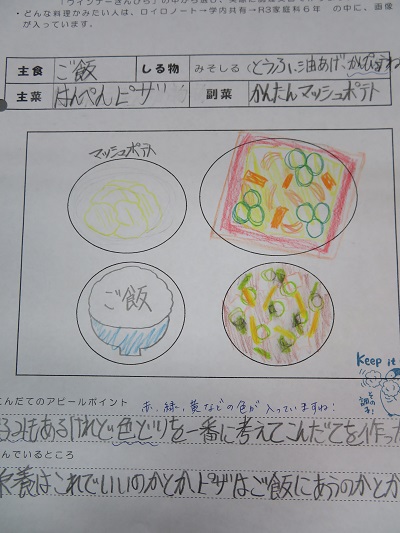 「ウインナーきんぴら」の中から選び、
・どんな料理かみたい人は、ロイロノート→学内共有→R3家庭科6年 の中に、画像
が入っています。
主食 ご飯 しる物 みそしる(とうふ、油あげ、
主菜 はんぺんピザ 副菜 かんたんマッシュポテト
マッシュポテト
ご飯
Keep it
その調子!
こんだてのアピールポイント 赤、緑、黄などの色が入っていますね!
もあるけれど色どりを一番に考えてこんだてを作った
んでいるところ
栄養はこれでいいのかとか、ピザはご飯にあうのかとか